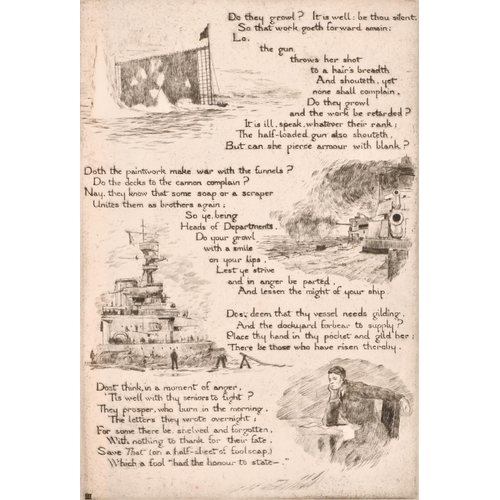 Do they growl? It is well: be thou silent,
So that work goeth forward amain:
Lo,
the gun
throws her shot
to a hair's breadth
And shouteth, yet
none shall complain,
Do they growl
and the work be retarded?
It is ill, speak, whatever their rank;
The half-loaded gun also shouteth,
But can she pierce armour with blank?
Doth the paintwork make war with the funnels?
Do the decks to the cannon complain?
Nay, they know that some soap or a scraper
Unites them as brothers again;
So ye, being
Heads of Departments,
Do your growl
with a smile
on your lips,
Lest ye strive
and in anger be parted,
And lessen the might of your ship.
Dost deem that thy vessel needs gilding,
And the dockyard forbear to supply?
Place thy hand in thy pocket and gild her;
There be those who have risen thereby.
Dost think, in a moment of anger,
'Tis well with thy seniors to fight?
They prosper, who burn in the morning,
The letters they wrote overnight;
For some there be, shelved and forgotten,
With nothing to thank for their fate,
Save That (on a half-sheet of foolscap)
Which a fool "had the honour to state—."